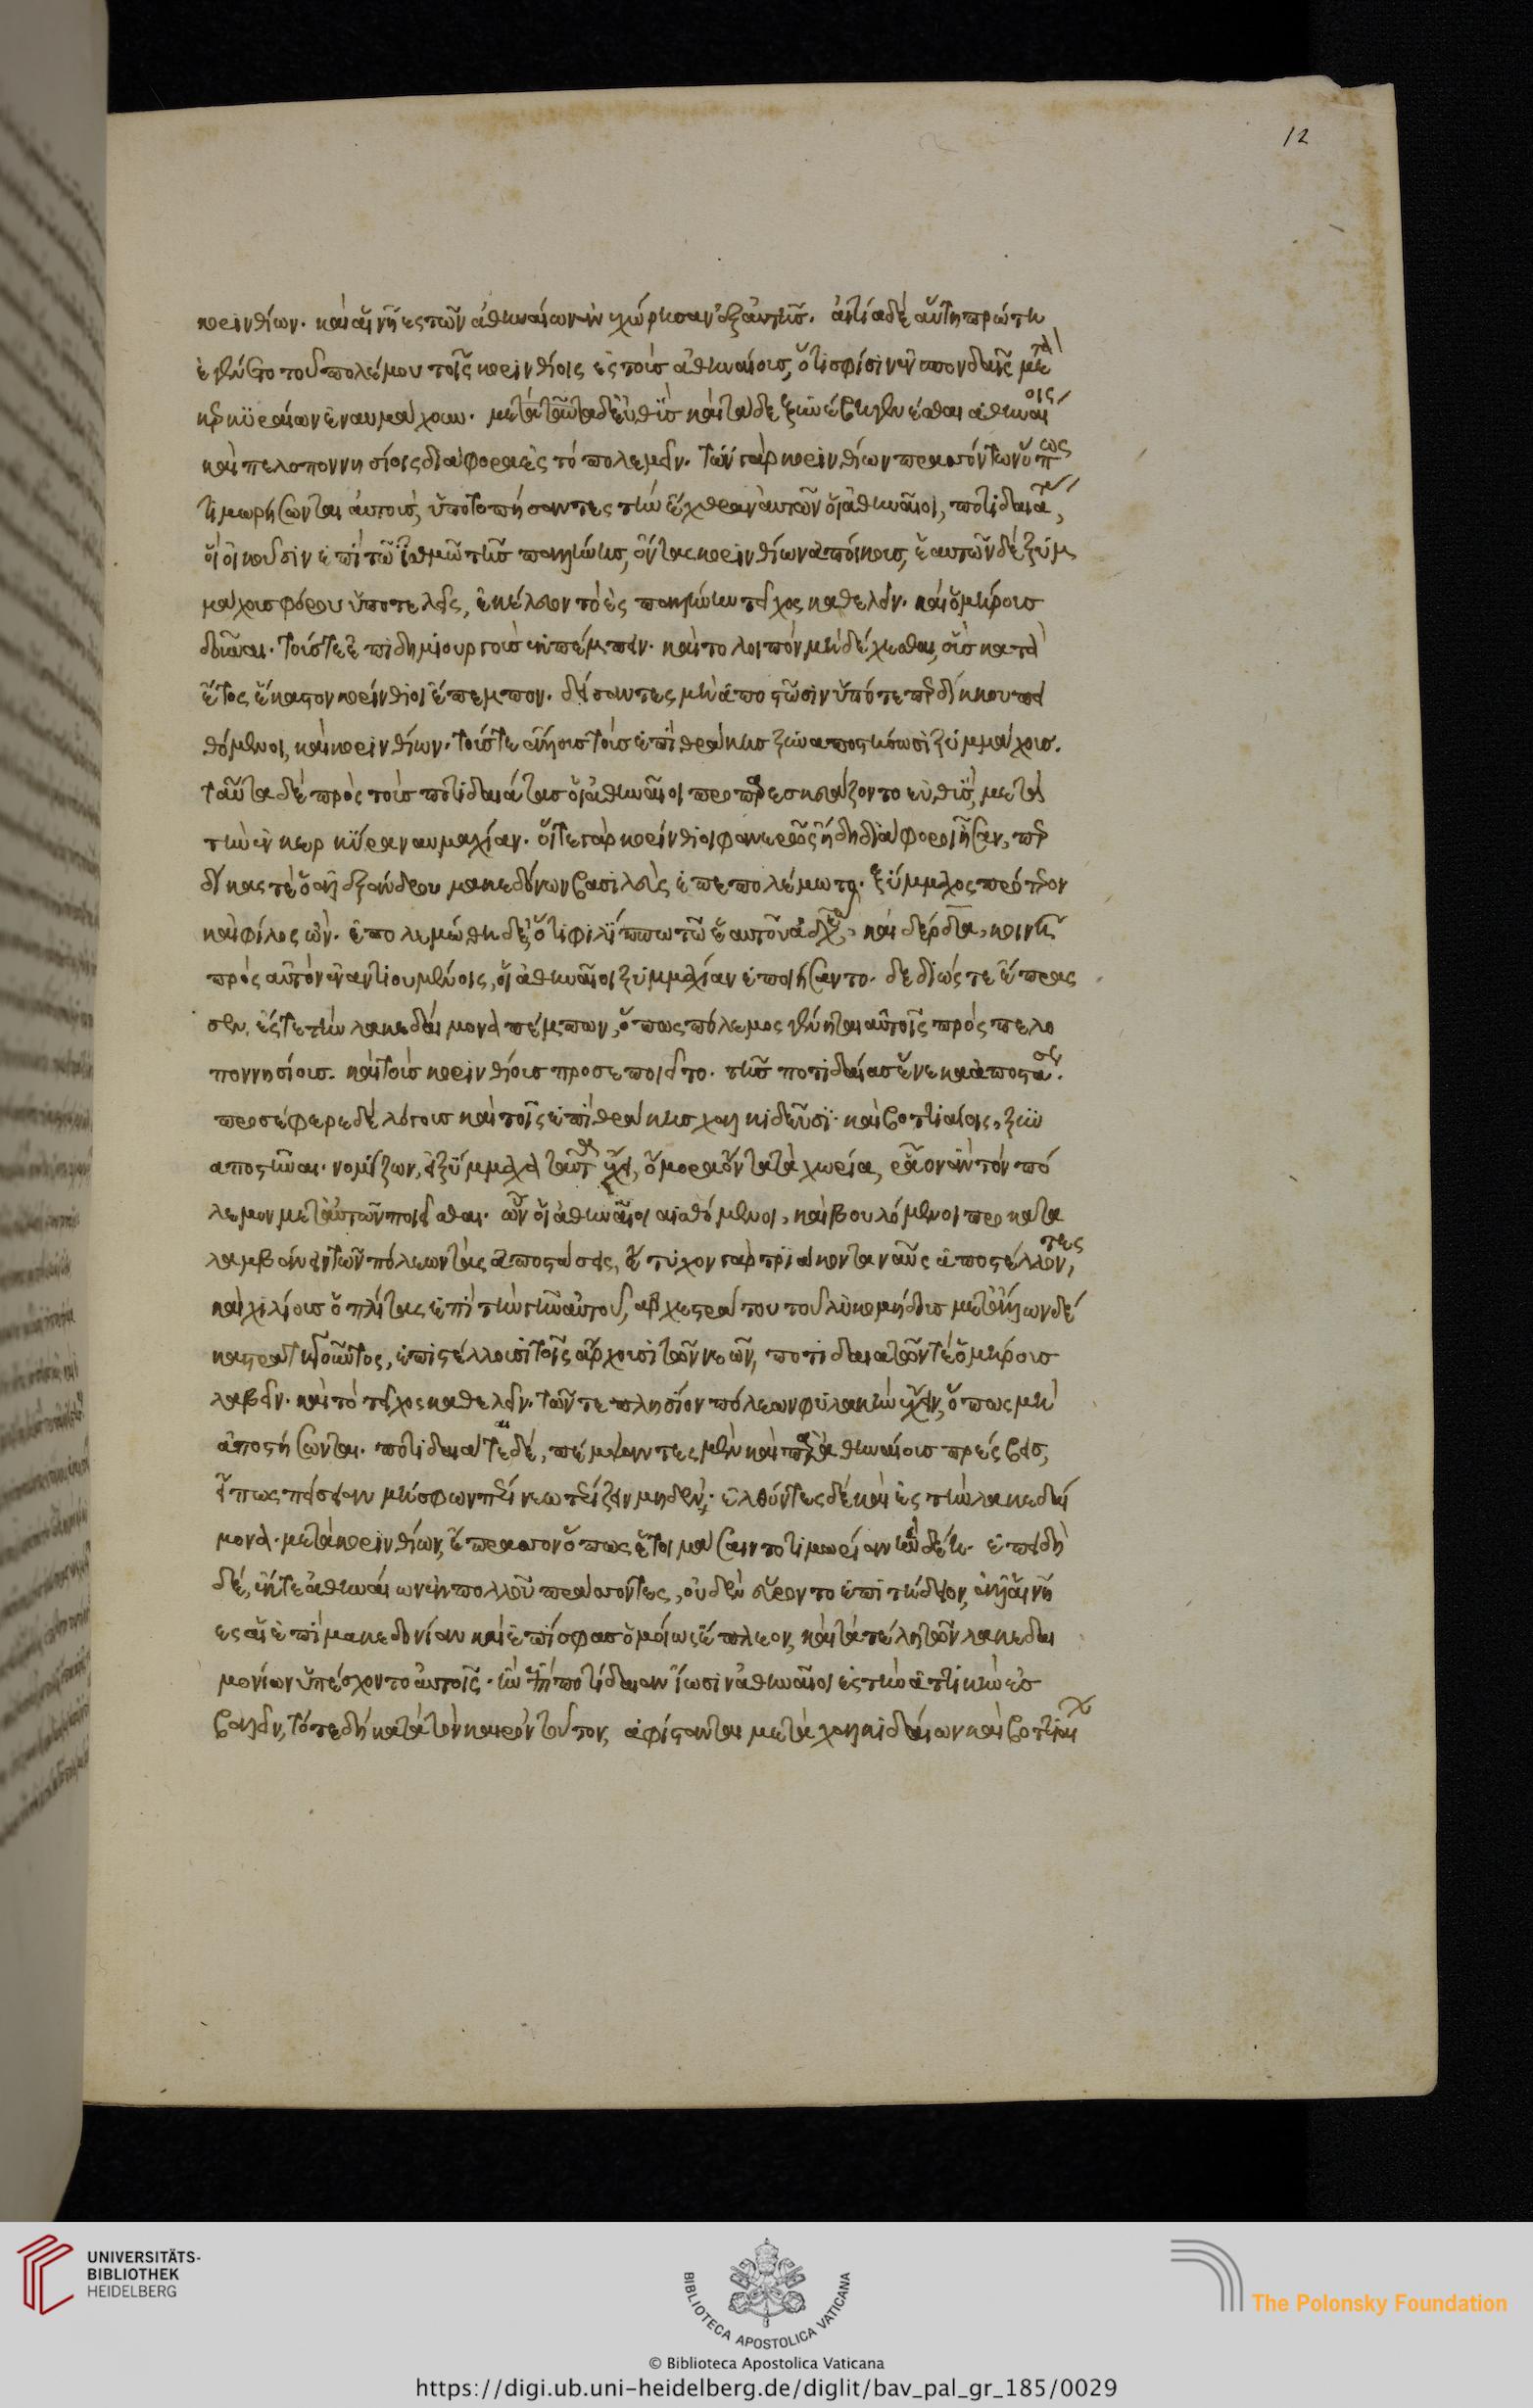 12
κορινθίων. καὶ αἱ νῆες τῶν ἀθηναίων ἀνεχώρησαν ἐξ αὐτῆς. αἰτία δὲ αὕτη πρώτη
ἐγένετο τοῦ πολέμου τοῖς κορινθίοις ἐς τοὺς ἀθηναίους, ὅτι σφίσιν ἐν σπονδαῖς μετὰ
κερκυραίων ἐναυμάχουν. μετὰ ταῦτα δ' εὐθὺς καὶ τάδε ξυνέβη γενέσθαι ἀθηναίοις
καὶ πελοποννησίοις διάφορα ἐς τὸ πολεμεῖν. τῶν γὰρ κορινθίων πρασσόντων ὅπως
τιμωρήσωνται αὐτοὺς, ὑποτοπήσαντες τὴν ἔχθραν αὐτῶν οἱ ἀθηναῖοι, ποτιδαιάτας,
οἳ οἰκοῦσιν ἐπὶ τῷ ἰσθμῷ τῆς παλλήνης, ὄντας κορινθίων ἀποίκους, ἑαυτῶν δὲ ξυμ
μάχους φόρου ὑποτελεῖς, ἐκέλευον τὸ ἐς παλλήνην τεῖχος καθελεῖν. καὶ ὁμήρους
δοῦναι. τούς τε ἐπιδημιουργοὺς ἐκπέμπειν. καὶ τὸ λοιπὸν μὴ δέχεσθαι, οὓς κατὰ
ἔτος ἕκαστον κορίνθιοι ἔπεμπον. δείσαντες μὴ ἀποστῶσιν ὑπό τε περδίκκου πει
θόμενοι, καὶ κορινθίων. τούς τε ἄλλους τοὺς ἐπὶ θράκης ξυναποστήσωσι ξυμμάχους.
ταῦτα δὲ πρὸς τοὺς ποτιδαιάτας οἱ ἀθηναῖοι προπαρεσκευάζοντο εὐθὺς μετὰ
τὴν ἐν κερκύρᾳ ναυμαχίαν. οἵ τε γὰρ κορίνθιοι φανερῶς ἤδη διάφοροι ἦσαν, περ
δίκας τὲ ὁ ἀλεξάνδρου μακεδόνων βασιλεὺς ἐπεπολέμωτο. ξύμμαχος πρότερον
καὶ φίλος ὤν. ἐπολεμώθη δὲ, ὅτι φιλίππῳ τῷ ἑαυτοῦ ἀδελφῷ, καὶ δέρδᾳ, κοινῇ
πρὸς αὐτὸν ἐναντιουμένοις, οἱ ἀθηναῖοι ξυμμαχίαν ἐποιήσαντο. δεδιώς τε ἔπρασ
σεν, ἔς τε τὴν λακεδαίμονα πέμπων, ὅπως πόλεμος γένηται αὐτοῖς πρὸς πελο
ποννησίους. καὶ τοὺς κορινθίους προσεποιεῖτο. τῆς ποτιδαίας ἕνεκα ἀποστάσεως.
προσέφερε δὲ λόγους καὶ τοῖς ἐπὶ θράκης χαλκιδεῦσι. καὶ βοττιαίοις, ξυν
αποστῆναι. νομίζων, εἰ ξύμμαχα ταῦτα ἔχοι, ὅμορα ὄντα τὰ χωρία, ῥᾷον ἂν τὸν πό
λεμον μετ' αὐτῶν ποιεῖσθαι. ὧν οἱ ἀθηναῖοι αἰσθόμενοι, καὶ βουλόμενοι προκατα
λαμβάνειν τῶν πόλεων τὰς ἀποστάσεις, ἔτυχον γὰρ τριάκοντα ναῦς ἀποστέλλοντες,
καὶ χιλίους ὁπλίτας ἐπὶ τὴν γῆν αὐτοῦ, ἀρχεστράτου τοῦ λυκομήδους μετ' ἄλλων δέκα
στρατηγοῦντος, ἐπιστέλλουσι τοῖς ἄρχουσι τῶν νεῶν, ποτιδαιατῶν τὲ ὁμήρους
λαβεῖν. καὶ τὸ τεῖχος καθελεῖν. τῶν τε πλησίον πόλεων φυλακὴν ἔχειν, ὅπως μὴ
ἀποστήσωνται. ποτιδαιᾶται δὲ, πέμψαντες μὲν καὶ παρ' ἀθηναίους πρέσβεις,
εἴ πως πείσειαν μὴ σφῶν πέρι νεωτερίζειν μηδέν. ἐλθόντες δὲ καὶ ἐς τὴν λακεδαί
μονα. μετὰ κορινθίων, ἔπρασσον ὅπως ἑτοιμάσαιντο τιμωρίαν ἢν δέῃ. ἐπειδὴ
δὲ, ἔκ τε ἀθηναίων ἐκ πολλοῦ πράσσοντες, οὐδὲν εὕροντο ἐπιτήδειον, ἀλλ' αἱ νῆ
ες αἱ ἐπὶ μακεδονίαν καὶ ἐπὶ σφᾶς ὁμοίως ἔπλεον, καὶ τὰ τέλη τῶν λακεδαι
μονίων ὑπέσχοντο αὐτοῖς. ἢν ἐπὶ ποτίδαιαν ἴωσιν ἀθηναῖοι ἐς τὴν ἀττικὴν ἐσ
βαλεῖν, τότε δὴ κατὰ τὸν καιρὸν τοῦτον, ἀφίστανται μετὰ χαλκιδαίων καὶ βοττιαί
UNIVERSITÄTS-
BIBLIOTHEK
HEIDELBERG
BIBLIOTECA APOSTOLICA VATICANA
The Polonsky Foundation
© Biblioteca Apostolica Vaticana
https://digi.ub.uni-heidelberg.de/diglit/bav_pal_gr_185/0029